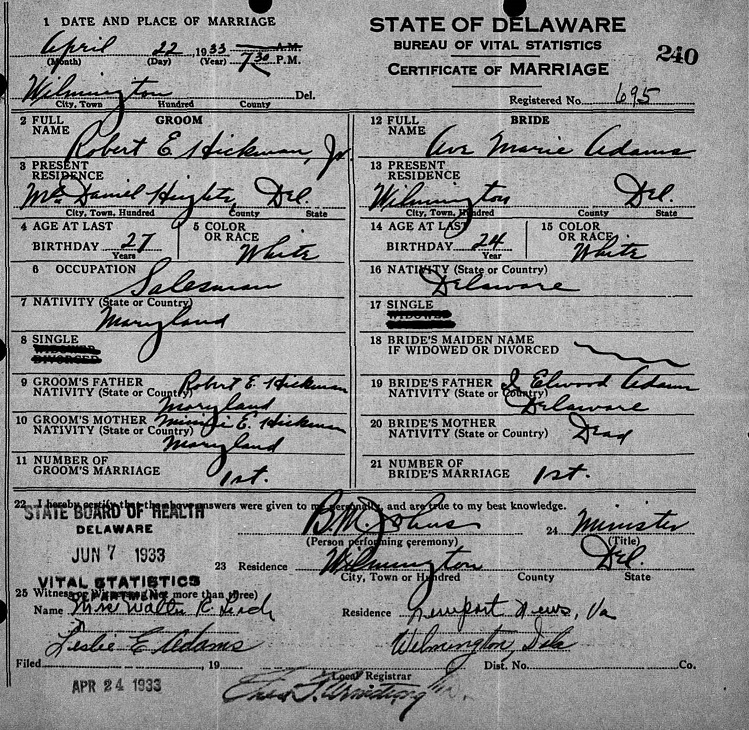 1 DATE AND PLACE OF MARRIAGE
April 22, 1933 A.M.
7:30 P.M.
(Month) (Day) (Year)
Wilmington Del.
City, Town Hundred County
STATE OF DELAWARE
BUREAU OF VITAL STATISTICS
CERTIFICATE OF MARRIAGE
240
Registered No. 695
2 FULL NAME GROOM
Robert E. Hickman, Jr.
3 PRESENT RESIDENCE
McDaniel Heights, Del.
City, Town, Hundred County State
4 AGE AT LAST BIRTHDAY 27
Years
5 COLOR OR RACE
White
6 OCCUPATION
Salesman
7 NATIVITY (State or Country)
Maryland
8 SINGLE
WIDOWED
DIVORCED
9 GROOM'S FATHER Robert E. Hickman
NATIVITY (State or Country)
Maryland
10 GROOM'S MOTHER E. Hickman
NATIVITY (State or Country)
Maryland
11 NUMBER OF GROOM'S MARRIAGE 1st.
12 FULL NAME BRIDE
Ava Marie Adams
13 PRESENT RESIDENCE
Wilmington Del.
City, Town, Hundred County State
14 AGE AT LAST BIRTHDAY 24
Year
15 COLOR OR RACE
White
16 NATIVITY (State or Country)
Delaware
17 SINGLE
WIDOWED
18 BRIDE'S MAIDEN NAME
IF WIDOWED OR DIVORCED
19 BRIDE'S FATHER Elwood Adams
NATIVITY (State or Country)
Delaware
20 BRIDE'S MOTHER
NATIVITY (State or Country) Dead
21 NUMBER OF BRIDE'S MARRIAGE 1st.
22 I hereby certify that the above answers were given to me personally, and are true to my best knowledge.
STATE BOARD OF HEALTH
DELAWARE
JUN 7 1933
VITAL STATISTICS
DEPARTMENT
B. M. Johns
(Person performing ceremony)
24 Minister
(Title)
23 Residence Wilmington Del.
City, Town or Hundred County State
25 Witness or Witnesses (Not more than three)
Name Mrs Walter R. Residence Newport News, Va
Leslie E Adams Wilmington, Dela
Filed , 19 Local Registrar Dist. No. Co.
APR 24 1933
Armstrong